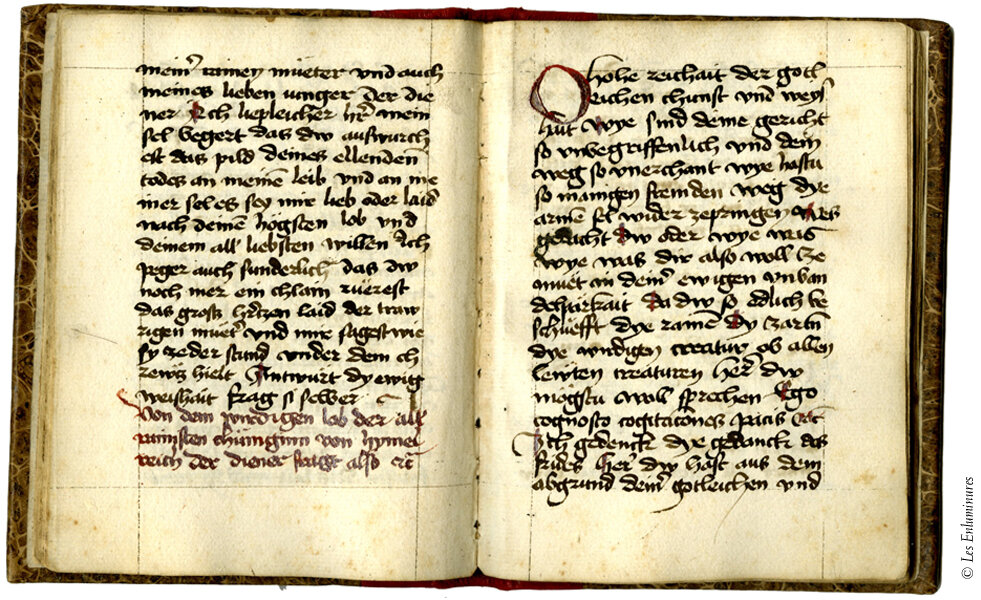 meiner rainen mueter vnd auch
meines lieben iunger Der die
ner Ach lieplicher hr̄ mein
sel begert das dw auswurch
est das pild deines ellenden
todes an meinē leib vnd an me
iner sel es sey mir lieb oder laid
nach deinē högsten lob vnd
deinem all liebsten willen Ich
peger auch sunderlich das dw
noch mer ein chlain ruerest
das gross hertzen laid der traw
rigen muet̄ vnd mir sagest wie
sy ze der stund vnder dem ch
rewtz hielt Antwurt dy ewig
weishait frag si selber
Von dem wirdigen lob der all
rainisten chuniginn von hymel
reich der diener fragt also etc̄
O hohe reichait der gotl
eichen chunst vnd weys
hait wye sind deine gericht
so vnbegriffenlich vnd dein
weg so vnerchant wye hastu
so manigen fremden weg dye
armē sel wider zepringen wes
gedacht dw oder wye was
wye was dir also woll ze
muet in deinē ewigen vnban
delparkait Da dw so edlich be
schuefft dye rainē dy zartn̄
dye wirdigen creatur ob allen
lewten creaturen her̄ dw
mogstu woll sprechen Ego
cognosco cogitacōnes pacis etc̄
Ich gedenck dye gedanck das
frides her̄ dw hast aus dem
abgrund deinr̄ gotleichen vnd
© Les Enluminures